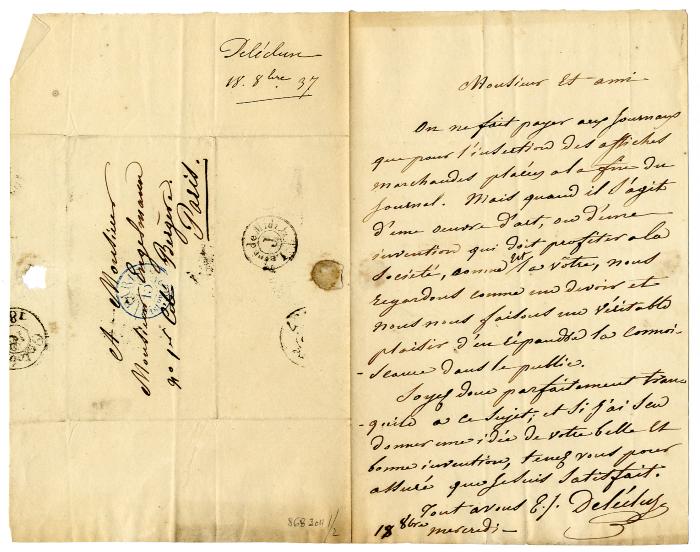 Delécluse
18. 8bre 37
A Monsieur
Monsieur Engelmann
no 1er Cité Bergère.
Paris.
Monsieur Et ami
On ne fait payer aux Journaux
que pour l'insection des affiches
marchandes placées a la fin du
Journal. Mais quand il s'agit
d'une oeuvre d'art, ou d'une
invention qui doit profiter a la
société, comme Est la vôtre, nous
regardons comme un devoir et
nous nous faisons un véritable
plaisir d'en répandre la connoi-
-sance dans le public.
Soyez donc parfaitement tran-
-quile a ce sujet; et si j'ai seu
donner une idée de votre belle et
bonne invention, tenez vous pour
assuré que je suis satisfait.
Tout a vous E. J. Delécluze
18 8bre
mercredi-
868 3011 1/2